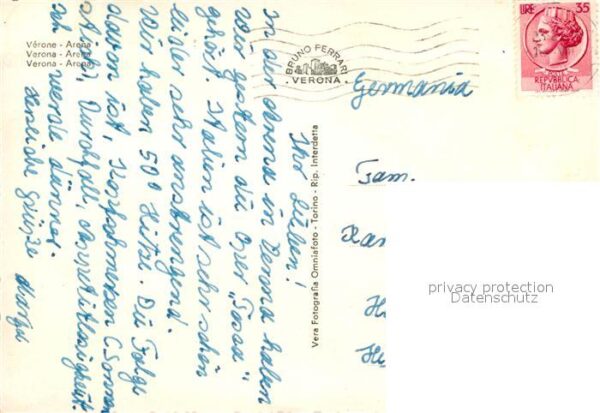 Vérone - Arena
Verona - Arena
Verona - Arena
BRUNO FERRARI
VERONA
LIRE 35
REPVBBLICA
ITALIANA
Germania
Fam.
privacy protection
Datenschutz
Vera Fotografia Omniafoto - Torino - Rip. Interdetta
Ihr Lieben!
In der Arena in Verona haben
wir gestern die Oper "Tosca"
gehört. Italien ist sehr schön
leider sehr anstrengend.
Wir haben 50° Hitze. Die Folge
davon ist, Kopfschmerzen (Sonnen
stich), Durchfall, Appetitlosigkeit.
Ich werde dünner.
Herzliche Grüße